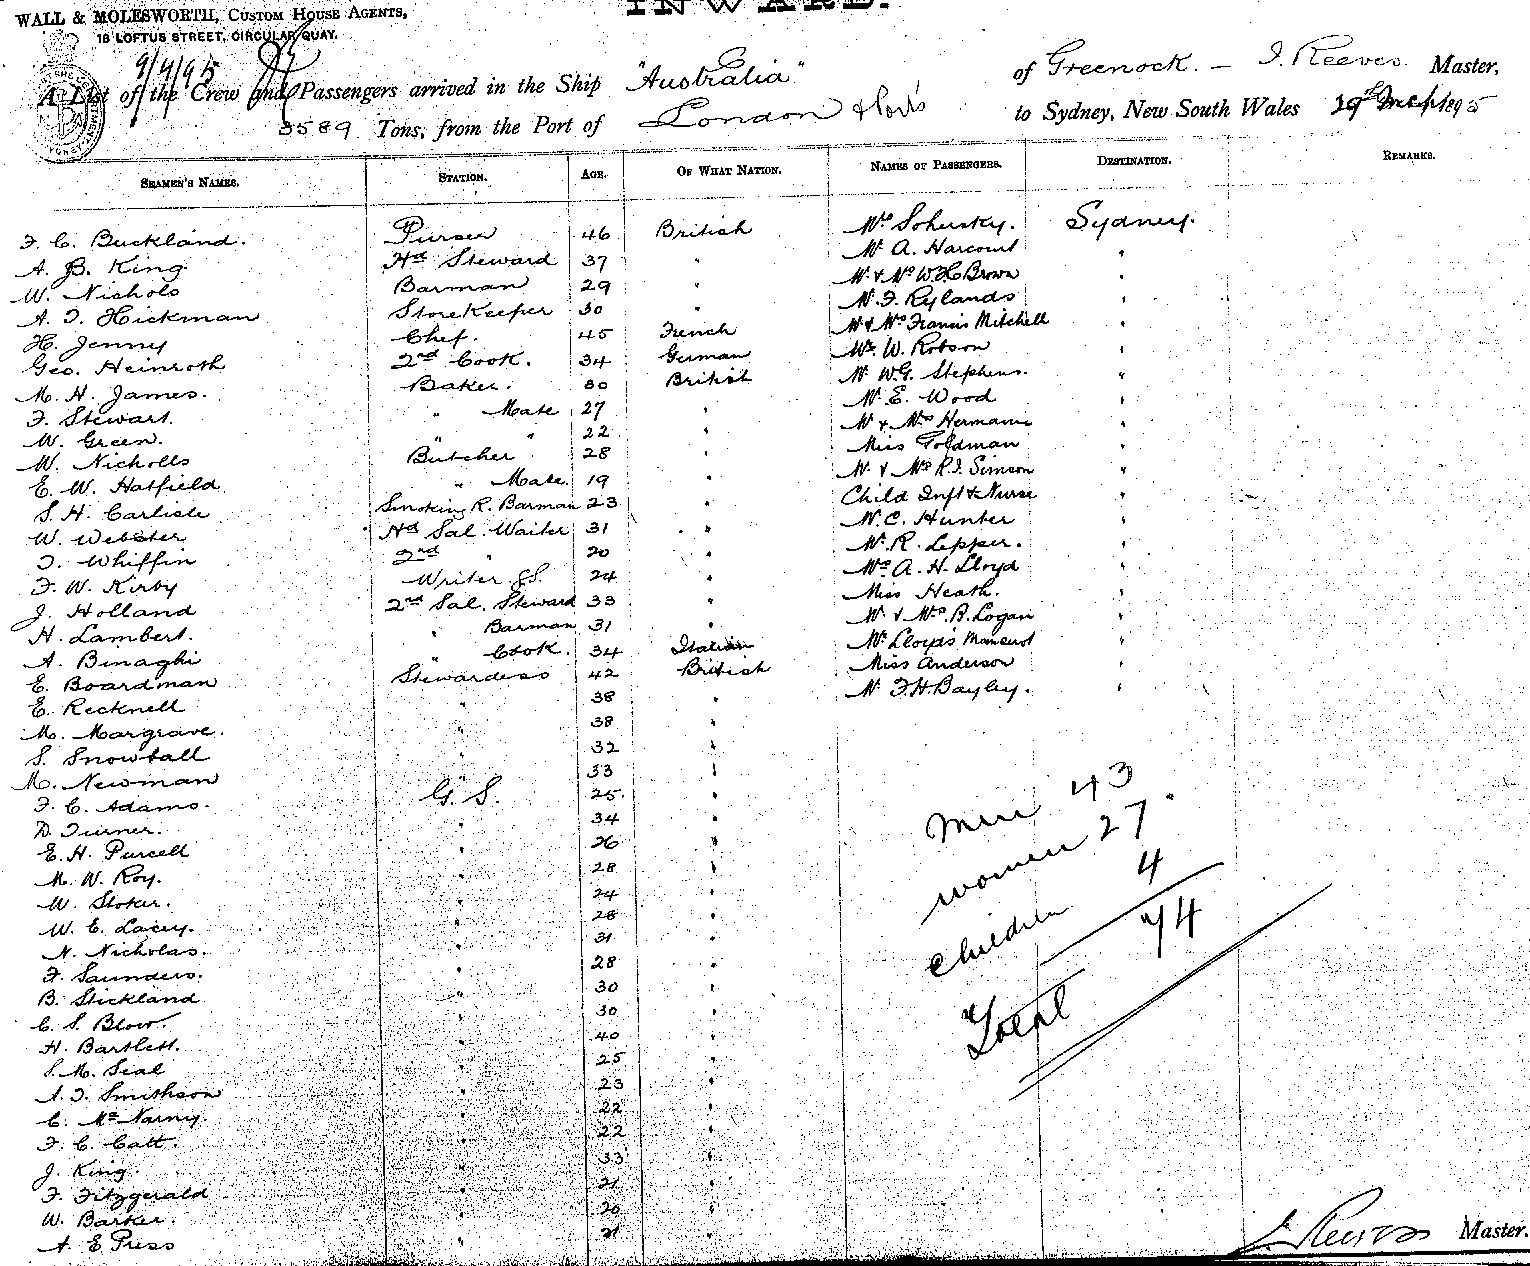 INWARD.
WALL & MOLESWORTH, CUSTOM HOUSE AGENTS,
18 LOFTUS STREET, CIRCULAR QUAY.
9/4/95
A List of the Crew and Passengers arrived in the Ship "Australia" of Greenock. — J. Reeves Master,
3589 Tons, from the Port of London & Ports to Sydney, New South Wales 29th 1895
SEAMEN'S NAMES. STATION. AGE. OF WHAT NATION. NAMES OF PASSENGERS. DESTINATION. REMARKS.
F. C. Buckland. Purser 46 British Mrs Sohersky. Sydney.
A. B. King Hd Steward 37 " Mr A. Harcourt "
W. Nichols Barman 29 " Mr & Mrs W. H. Brown "
A. J. Hickman StoreKeeper 30 " Mr F. Rylands "
H. Jenny Chef. 45 French Mr & Mrs Francis Mitchell "
Geo. Heinroth 2nd Cook. 34 German Mr. W. Robson "
M. H. James. Baker. 30 British Mr W.G. Stephens. "
F. Stewart. " Mate 27 " Mr E. Wood "
W. Green. " " 22 " Mr & Mrs Hermann "
W. Nicholls Butcher 28 " Miss Goldman "
E. W. Hatfield " Mate. 19 " Mr & Mrs R. J. Simson "
S. H. Carlisle Smoking R. Barman 23 " Child Inft & Nurse "
W. Webster Hd Sal. Waiter 31 " Mr C. Hunter "
J. Whiffin 2nd " 20 " Mr. R. Lepper. "
F. W. Kirby Writer. G.S. 24 " Mrs A. H. Lloyd "
J. Holland 2nd Sal. Steward 33 " Miss Heath. "
H. Lambert. " Barman 31 " Mr & Mrs. R. Logan "
A. Binaghi " Cook. 34 Italian Mrs Lloyd's "
E. Boardman Stewardess 42 British Miss Anderson "
E. Recknell " 38 " Mr F.H. Bayley. "
M. Margrave. " 38 "
S. Snowball " 32 "
M. Newman " 33 "
F. C. Adams. G. S. 25 "
D. Turner. " 34 "
E. H. Purcell " 26 "
M. W. Roy. " 28 "
W. Stoker. " 24 "
W. E. Lacey. " 28 "
N. Nicholas. " 31 "
F. Saunders. " 28 "
B. Stickland " 30 "
C. S. Blow. " 30 "
H. Bartlett. " 40 "
S. M. Seal " 25 "
A. J. Smithson " 23 "
C. Mc Narny. " 22 "
F. C. Catt. " 22 "
J. King. " 33 "
F. Fitzgerald " 21 "
W. Barker. " 20 "
A. E Press " 21 "
Men 43
women 27
children 4
Total 74
J. Reeves Master.